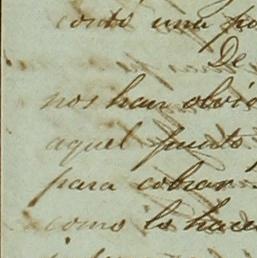 contó una
De
nos han
aquel punto
para cobrar
como lo hace